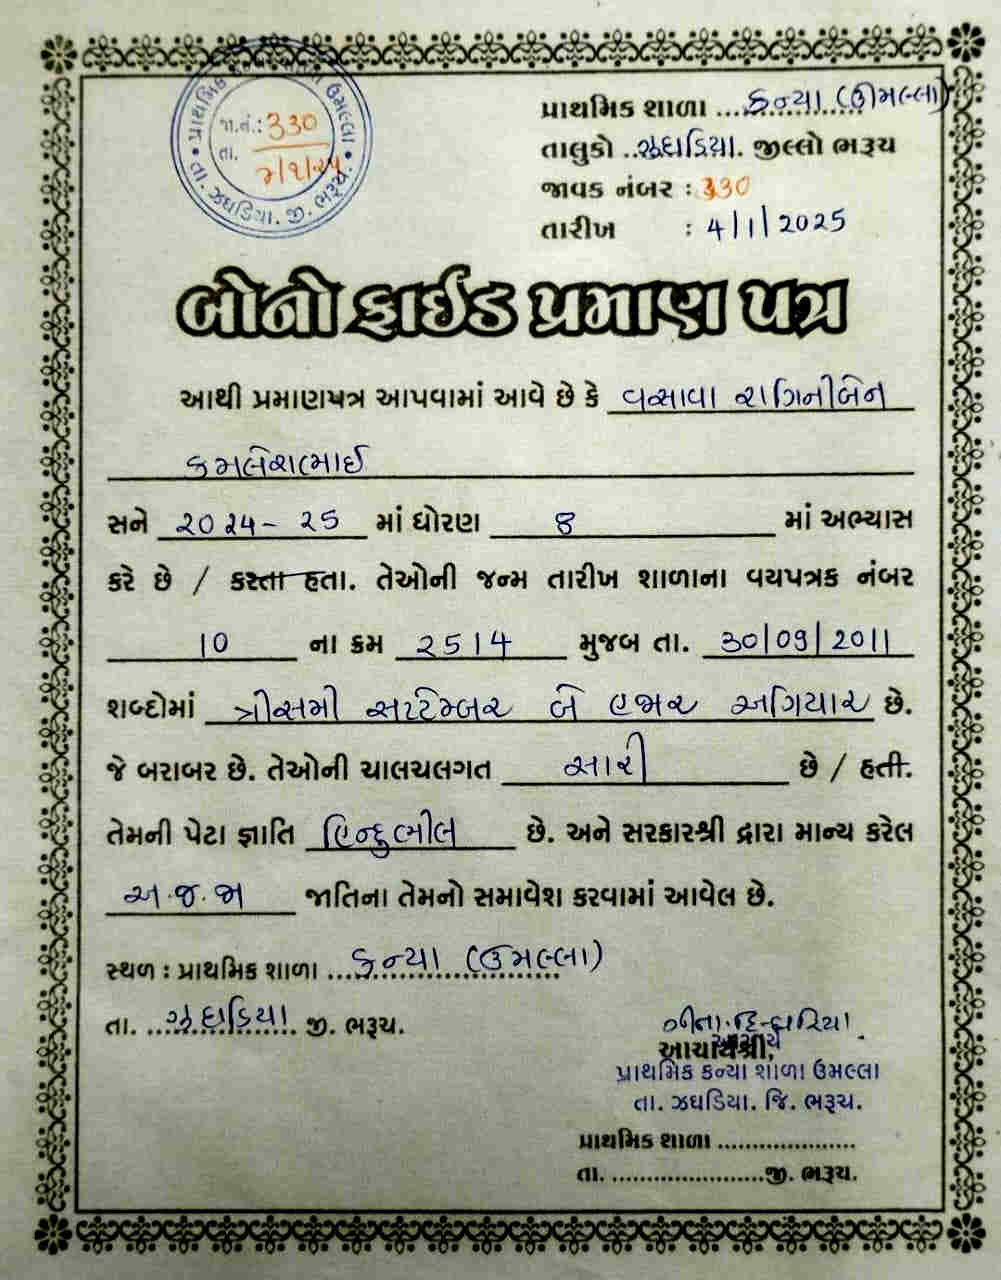 પ્રાથમિક શાળા ....કન્યા (ઉમલ્લા)
તાલુકો ..ઝઘડિયા. જીલ્લો ભરૂચ
જાવક નંબર : 330
તારીખ : 4/1/2025
પ્રાથમિક કન્યા શાળા ઉમલ્લા
જા.નં.: 330
તા.
• તા. ઝઘડિયા. જી. ભરૂચ. •
બોનોફાઈડ પ્રમાણ પત્ર
આથી પ્રમાણપત્ર આપવામાં આવે છે કે વસાવા રાગિનીબેન
કમલેશભાઈ
સને 2024-25 માં ધોરણ 8 માં અભ્યાસ
કરે છે / કરતા હતા. તેઓની જન્મ તારીખ શાળાના વયપત્રક નંબર
10 ના ક્રમ 2514 મુજબ તા. 30/09/2011
શબ્દોમાં ત્રીસમી સપ્ટેમ્બર બે હજાર અગિયાર છે.
જે બરાબર છે. તેઓની ચાલચલગત સારી છે / હતી.
તેમની પેટા જ્ઞાતિ હિન્દુભીલ છે. અને સરકારશ્રી દ્વારા માન્ય કરેલ
અ.જ.જા જાતિના તેમનો સમાવેશ કરવામાં આવેલ છે.
સ્થળ : પ્રાથમિક શાળા ....કન્યા (ઉમલ્લા)
તા. ....ઝઘડિયા. જી. ભરૂચ.
આચાર્ય
આચાર્યશ્રી,
પ્રાથમિક કન્યા શાળા ઉમલ્લા
તા. ઝઘડિયા. જિ. ભરૂચ.
પ્રાથમિક શાળા ....................
તા. ......................જી. ભરૂચ.